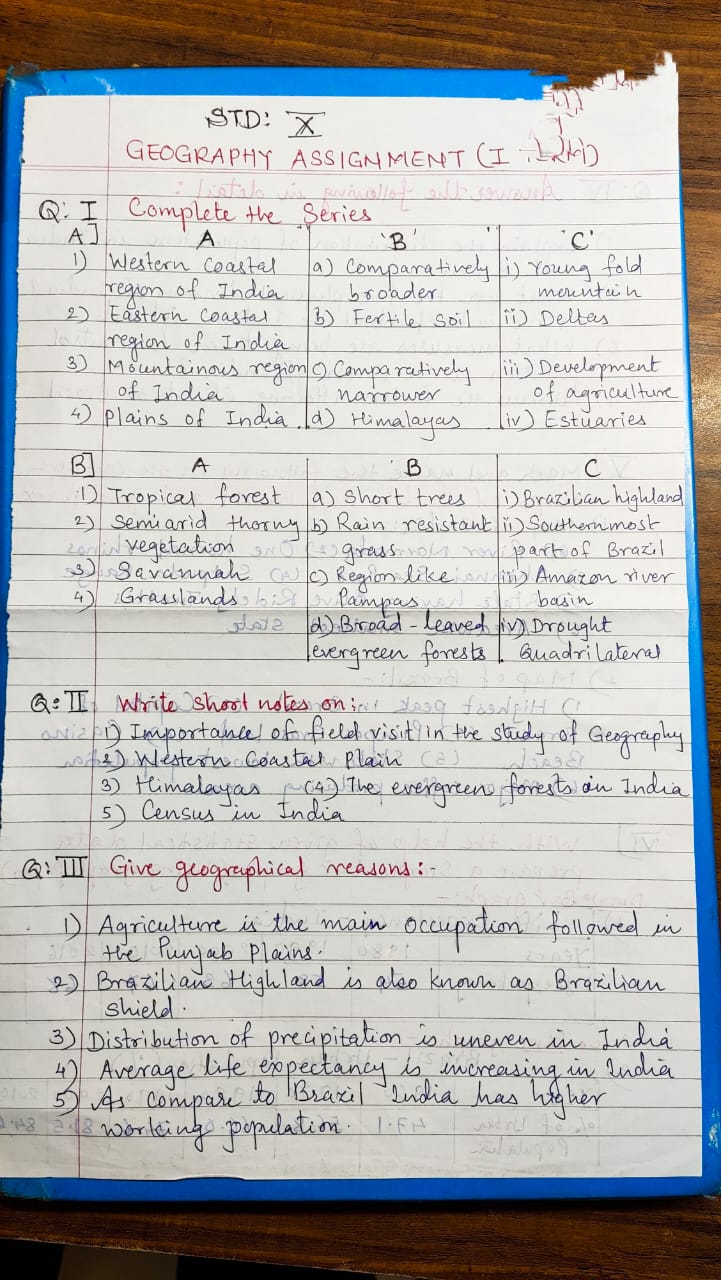 STD: X
GEOGRAPHY ASSIGNMENT (I
Q: I Complete the Series
A] A 'B' 'C'
1) Western Coastal a) Comparatively i) Young fold
region of India broader mountain
2) Eastern Coastal b) Fertile Soil ii) Deltas
region of India
3) Mountainous region c) Comparatively iii) Development
of India narrower of agriculture
4) Plains of India. d) Himalayas iv) Estuaries
B] A B C
1) Tropical forest a) Short trees i) Brazilian highland
2) Semiarid thorny b) Rain resistant ii) Southernmost
vegetation grass part of Brazil
3) Savannah c) Region like iii) Amazon river
4) Grasslands Pampas basin
d) Broad-leaved iv) Drought
evergreen forests Quadrilateral
Q: II Write Short notes on:
1) Importance of field visit in the study of Geography
2) Western Coastal Plain
3) Himalayas (4) The evergreen forests in India
5) Census in India
Q: III Give geographical reasons:-
1) Agriculture is the main occupation followed in
the Punjab Plains.
2) Brazilian Highland is also known as Brazilian
Shield.
3) Distribution of precipitation is uneven in India
4) Average life expectancy is increasing in India
5) As compare to Brazil India has higher
working population.